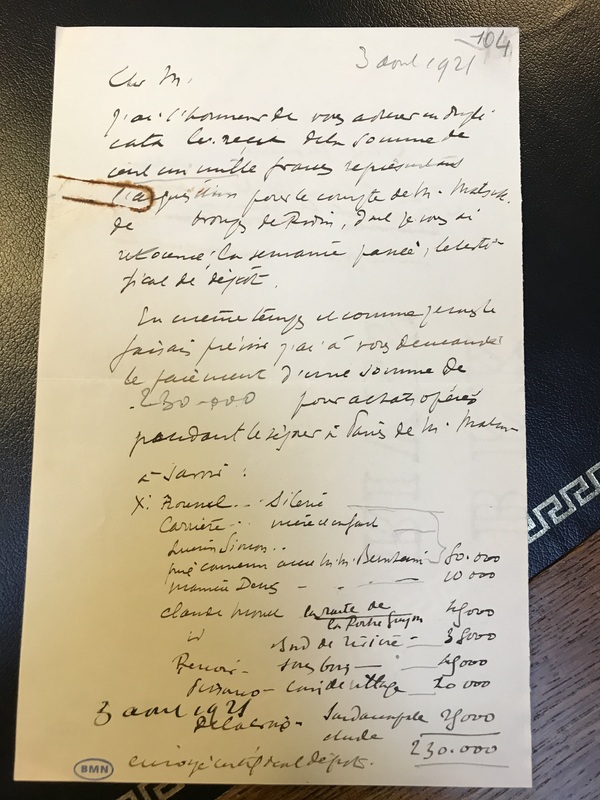 104
3 avril 1921
Cher M.
J'ai l'honneur de vous adresser en dupli
cata les reçus de la somme de
cent un mille francs représentant
l'acquisition pour le compte de M. Matsuk.
de bronzes de Rodin, dont je vous ai
retourné la semaine passée, le certi-
ficat de dépôt.
En même temps et comme je vous le
faisais prévoir j'ai à vous demander
le paiement d'une somme de
230-000 pour achats opérés
pendant le séjour à Paris de M. Matsu-
à savoir :
X. Roussel... Silène
Carrière... mère et enfant
Lucien Simon..
MM. Bernheim 80.000
Maurice Denis - - 10 000
Claude Monet la route de
la Roche Guyon 45000
id Bord de rivière - 35000
Renoir - 45000
Pissarro - coin de village 20 000
3 avril 1921
Delacroix - Sardanapale 25000
étude
230.000
envoyé certificat dépôt.
BMN